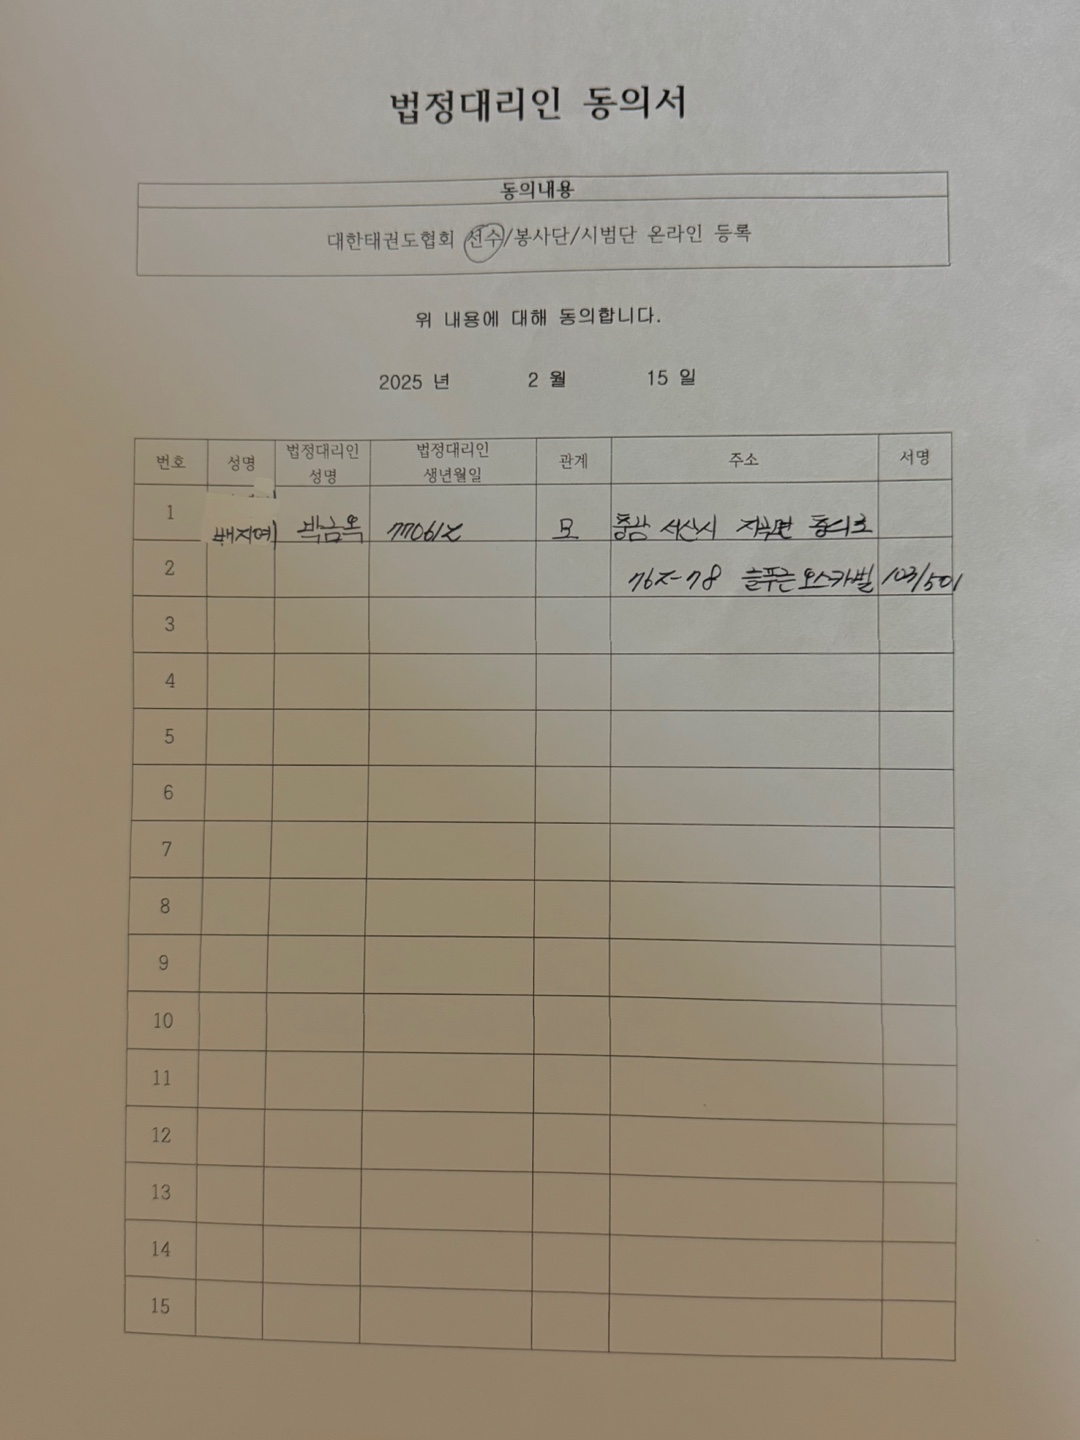 법정대리인 동의서
동의내용
대한태권도협회 선수/봉사단/시범단 온라인 등록
위 내용에 대해 동의합니다.
2025 년 2 월 15 일
번호 성명 법정대리인 성명 법정대리인 생년월일 관계 주소 서명
1 배지연 박금옥 770612 모 충남 서산시 지곡면 충의로
2 762-78 늘푸른오스카빌 103/501
3
4
5
6
7
8
9
10
11
12
13
14
15